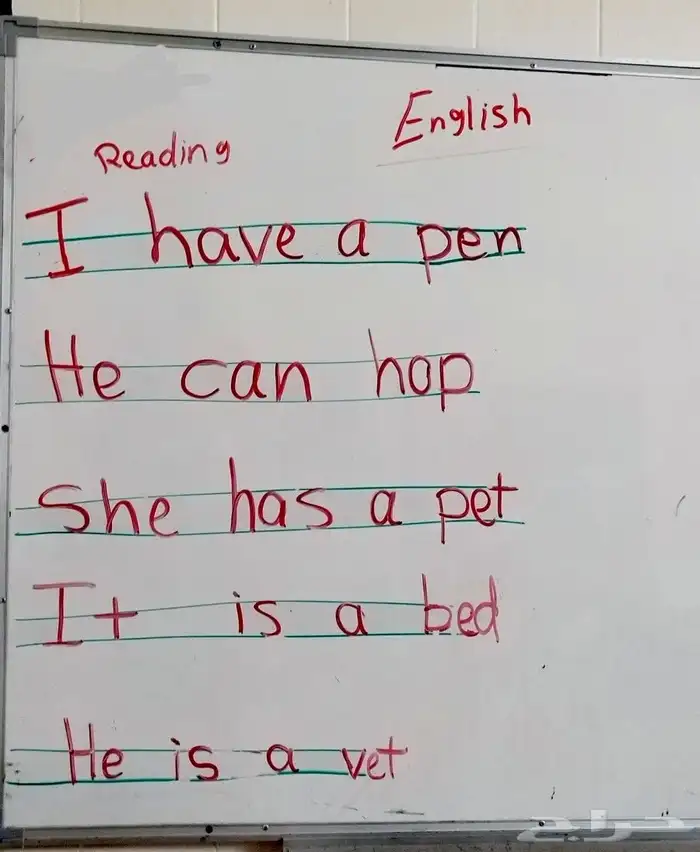 English
Reading
I have a pen
He can hop
She has a pet
It is a bed
He is a vet
حراج